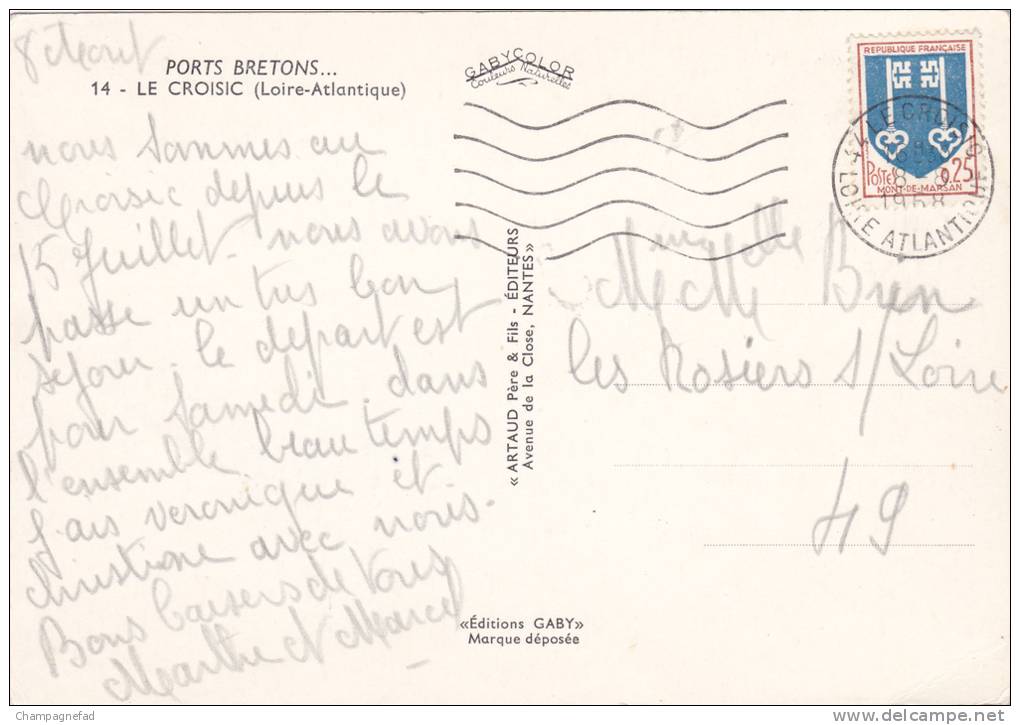 8 Aout
PORTS BRETONS...
14 - LE CROISIC (Loire-Atlantique)
nous sommes au
Croisic depuis le
15 Juillet. nous avons
passe un tres bon
séjour. le départ est
pour samedi dans
l'ensemble beau temps
J'ais veronique et
christiane avec nous.
Bons baisers de Vous
Marthe et Marcel
GABYCOLOR
Couleurs Naturelles
« ARTAUD Père & Fils - ÉDITEURS
Avenue de la Close, NANTES »
«Éditions GABY»
Marque déposée
REPUBLIQUE FRANÇAISE
POSTES
0,25
MONT-DE-MARSAN
44 LE CROISIC
8 - 8
1968
LOIRE ATLANTIQUE
les Rosiers s/Loire
49
Champagnefad
delcampe.net